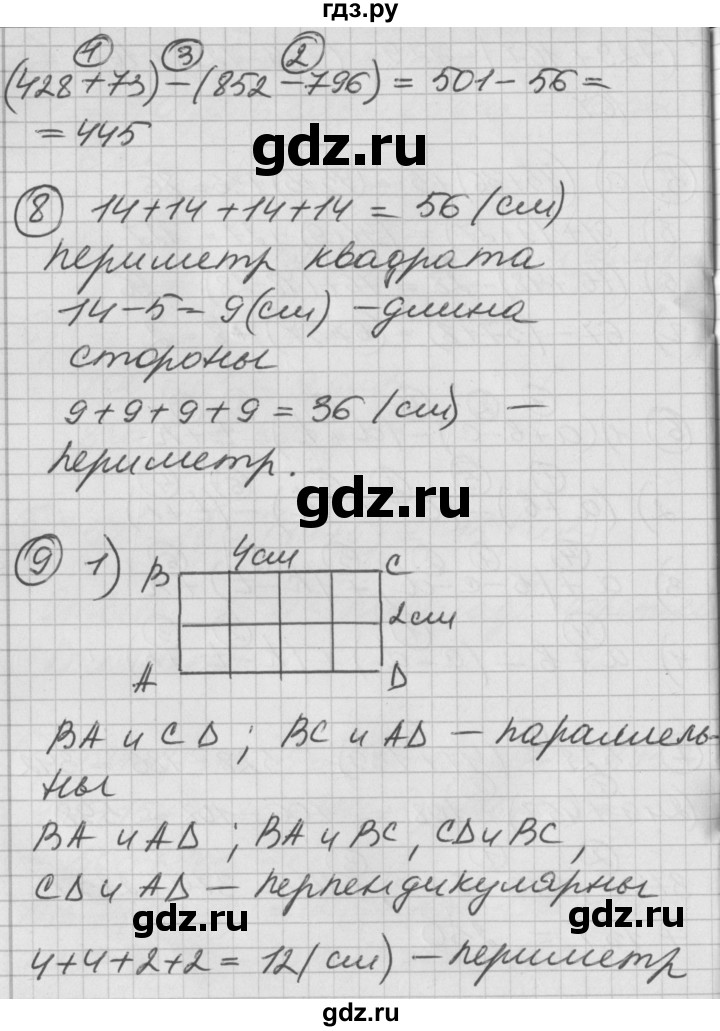 гдз.ру
1 3 2
(428+73)-(852-796) = 501-56=
=445
gdz.ru
8 14+14+14+14 = 56 (см)
периметр квадрата
14-5=9(см) -длина
стороны
9+9+9+9=36 (см) —
периметр.
gdz.ru
9 1) B 4см C
2см
A D
BA и CD; BC и AD — параллель-
ны
BA и AD; BA и BC, CD и BC,
CD и AD — перпендикулярны
gdz.ru gdz.ru
4+4+2+2=12(см) — периметр
gdz.ru